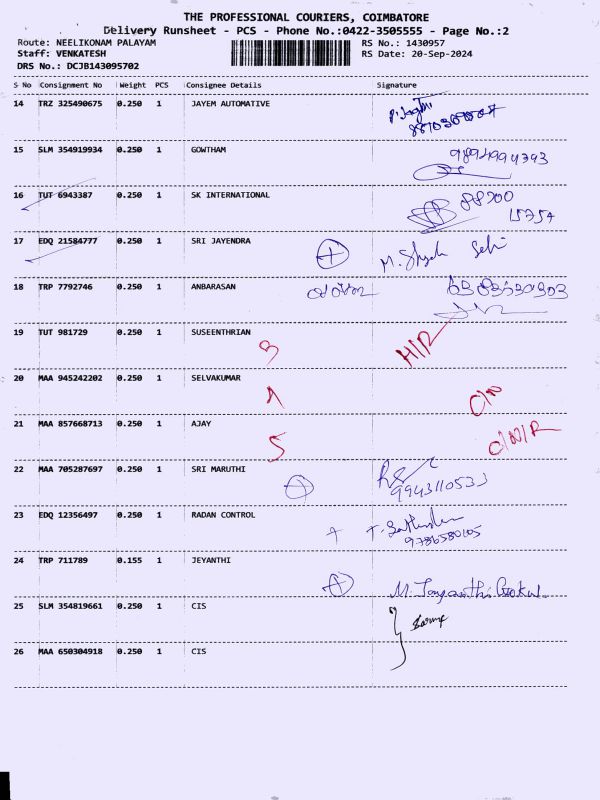 THE PROFESSIONAL COURIERS, COIMBATORE
Delivery Runsheet - PCS - Phone No.:0422-3505555 - Page No.:2
Route: NEELIKONAM PALAYAM RS No.: 1430957
Staff: VENKATESH RS Date: 20-Sep-2024
DRS No.: DCJB143095702
S No Consignment No Weight PCS Consignee Details Signature
14 TRZ 325490675 0.250 1 JAYEM AUTOMATIVE
15 SLM 354919934 0.250 1 GOWTHAM
16 TUT 6943387 0.250 1 SK INTERNATIONAL 88700
15754
17 EDQ 21584777 0.250 1 SRI JAYENDRA
18 TRP 7792746 0.250 1 ANBARASAN
19 TUT 981729 0.250 1 SUSEENTHRIAN
3 H/R
20 MAA 945242202 0.250 1 SELVAKUMAR
21 MAA 857668713 0.250 1 AJAY
5 C/N/R
22 MAA 705287697 0.250 1 SRI MARUTHI
9943110533
23 EDQ 12356497 0.250 1 RADAN CONTROL
+
9786580105
24 TRP 711789 0.155 1 JEYANTHI
M. Jayanthi Gokul.
25 SLM 354819661 0.250 1 CIS
26 MAA 650304918 0.250 1 CIS